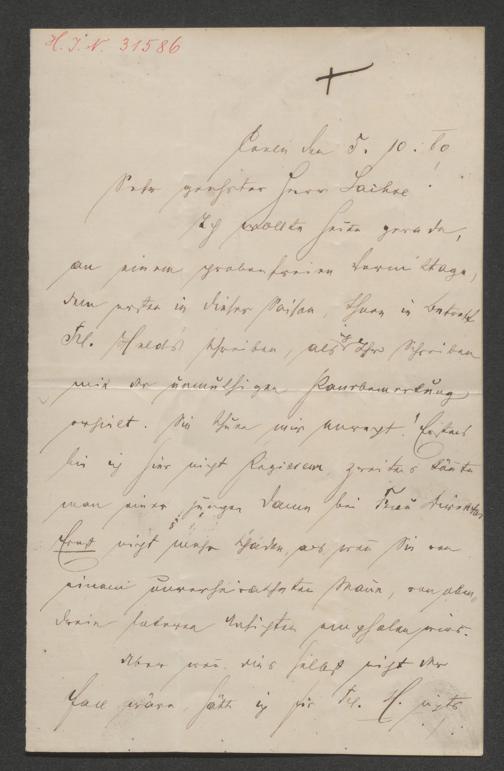 H. I. N. 31586
den 5. 10. 80
Sehr geehrter Herr
Ich wollte heute gerade,
an einem probenfreien Vormittage,
dem ersten in dieser Saison, Ihnen in betreff
Frl. Held's schreiben, als ich Ihr Schreiben
mit der unmuthigen Randbemerkung
erhielt. Sie thun mir unrecht! Erstens
bin ich hier nicht Regisseur zweitens könnte
man einer jungen Dame bei Frau Direktor
Ernst nicht mehr schaden, als wenn Sie von
einem unverheiratheten Manne, von oben-
drein Ansichten empfohlen wird.
Aber wenn dies selbst nicht der
Fall wäre, hätte ich für Frl. H. nichts